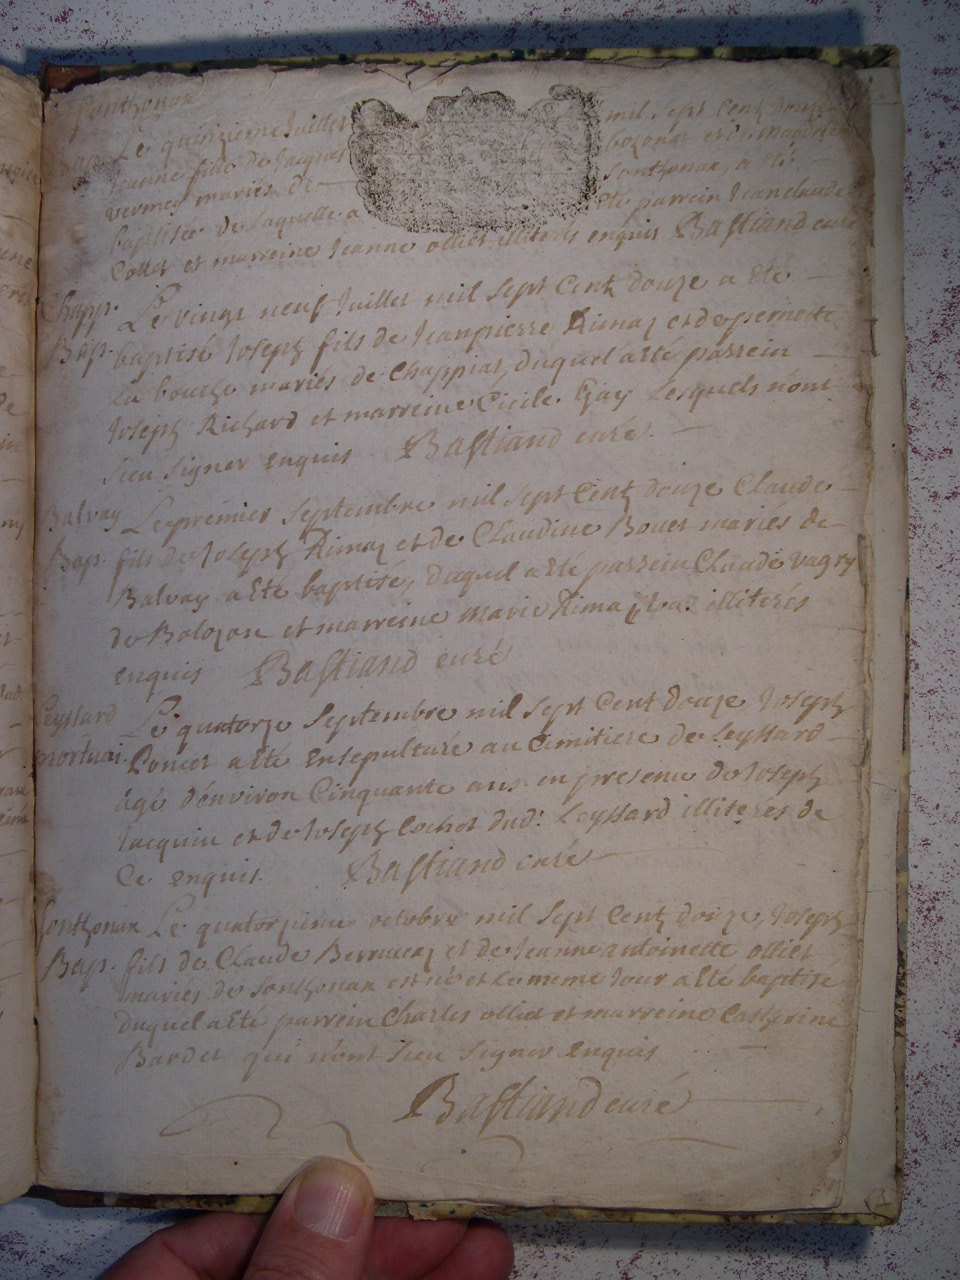 Sonthonax
Bap. Le quinzieme Juillet mil sept Cent douze
Jeanne fille de Jacques bozonat et de Magdelene
vermey mariés de Sonthonax, a eté
baptisée de laquelle a eté parrein Jeanclaude
Collet et marreine Jeanne olliet illiterés enquis Bastiand curé
Chapp. Le vingt neuf Juillet mil sept Cent douze a eté
Bap. baptisé Joseph fils de Jeanpierre Rimaz et de pernette
La bouche mariés de Chappiaz, duquel a eté parrein
Joseph Richard et marreine Cicile Gay Lesquels n'ont
sceu signer enquis Bastiand curé.
Balvay Le premier septembre mil sept Cent douze Claude
Bap. fils de Joseph Rimaz et de Claudine Bouet mariés de
Balvay a eté baptisé, duquel a eté parrein Claude vagry
de Bolozon et marreine marie Rimaz illiterés
enquis Bastiand curé
Leyssard Le quatorze septembre mil sept Cent douze Joseph
mortuai. Poncet a eté ensepulturé au Cimitiere de Leyssard
agé d'environ Cinquante ans en presence de Joseph
Jacquin et de Joseph Cochet dud: Leyssard illiterés de
Ce enquis. Bastiand curé
Sonthonax Le quatorzieme octobre mil sept Cent douze Joseph
Bap. fils de Claude Berrucaz et de Jeanne antoinette olliet
mariés de Sonthonax est né et le meme Jour a eté baptisé
duquel a eté parrein Charles olliet et marreine Catherine
Bardet qui n'ont sceu signer enquis
Bastiand curé